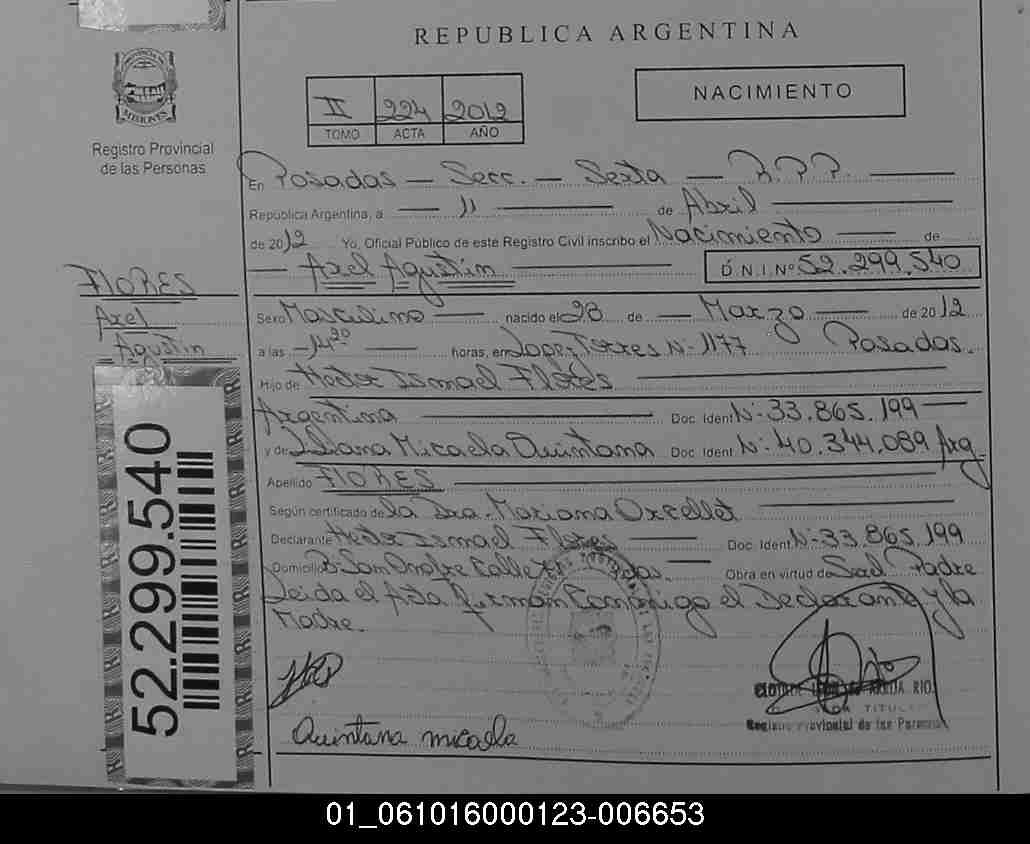 REPUBLICA ARGENTINA
PROVINCIA DE
MISIONES
Registro Provincial
de las Personas
II 224 2012
TOMO ACTA AÑO
NACIMIENTO
En Posadas — Secc. — Sexta — R.P.P.
República Argentina, a — 11 — de Abril
de 2012 Yo, Oficial Público de este Registro Civil inscribo el Nacimiento — de
— Axel Agustín — D.N.I. Nº 52.299.540
FLORES
Axel
Agustín
Sexo Masculino — nacido el 28 de — Marzo — de 2012
a las — 14 30 — horas, en Lopez Torres N: 1177 Posadas.
Hijo de Hector Ismael Flores
Argentina — Doc. Ident. N: 33.865.199
y de Liliana Micaela Quintana Doc. Ident. N: 40.344.089 Arg.
Apellido FLORES
Según certificado de la Dra. Mariana
Declarante Hector Ismael Flores — Doc. Ident. N: 33.865.199
Domicilio B San Onofre Calle Pdas. — Obra en virtud de Ser el Padre
Leida el Acta firman Conmigo el Declarante y la
Madre.
52.299.540
Quintana micaela
TITULAR
Registro Provincial de las Personas
01_061016000123-006653